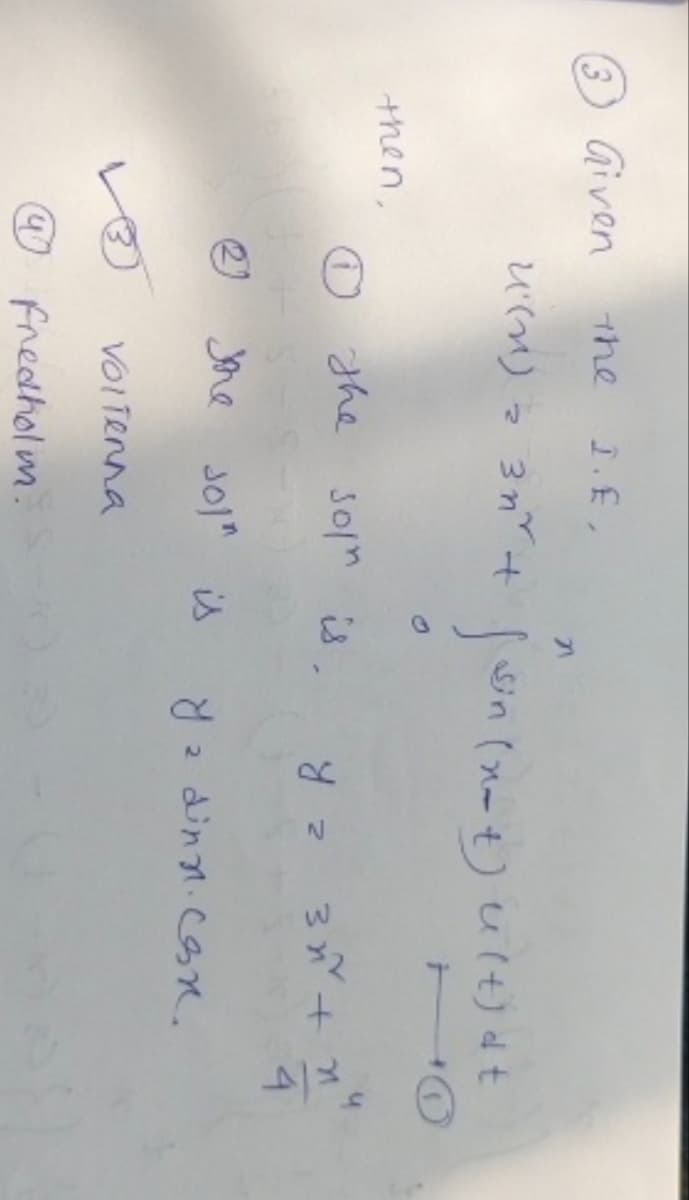 ③ Given the I.E,
u(x) = 3x² + ∫₀ˣ sin (x-t) u(t) dt → ①
then,
① The solⁿ is, y = 3x² + x⁴/4
② The solⁿ is y = sinx.cosx.
✓③ volTerra
④ Fredholm.